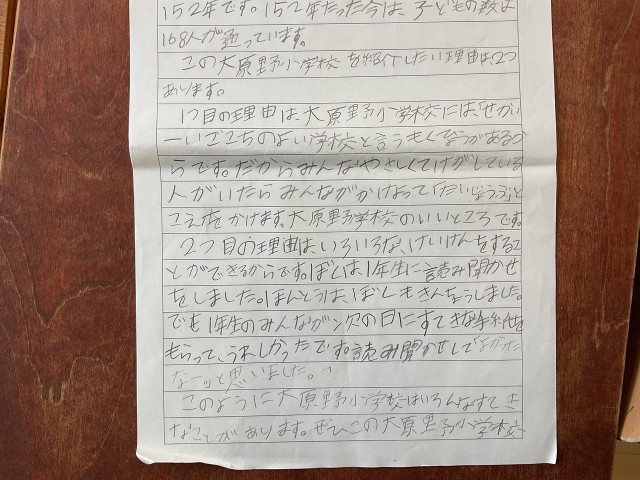 152年です。152年たった今は、子どもの数は
168人が通っています。
この大原野小学校を紹介したい理由は、2つ
あります。
1つ目の理由は大原野小学校には「せかい
一いごこちのよい学校と言うもくひょうがあるか
らです。だからみんなやさしくてけがしている
人がいたらみんながかけよって「だいじょうぶ」と
こえをかけます。大原野学校のいいところです。
2つ目の理由は、いろいろな、けいけんをするこ
とができるからです。ぼくは、1年生に読み聞かせ
をしました。ほんとうは、ぼくもきんちょうしました。
でも1年生のみんなが次の日にすてきな手紙を
もらって、うれしかったです。読み聞かせして「よかった
なー」と思いました。
このように大原野小学校はいろんなすてき
なことがあります。ぜひこの大原野小学校